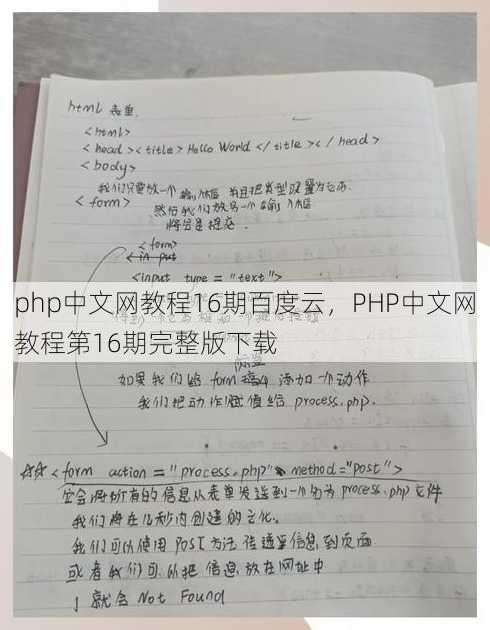 html 表单.
<html>
<head><title>Hello World</title></head>
<body>
我们只需放一个输入标签 并且把类型设置为它
<form>
然后我们放另一个输入标签
将会是提交.
<form>
<input
<input type = "text">
php中文网教程16期百度云，PHP中文网
教程第16期完整版下载
如果我们给 form 添加一个动作
我们把动作赋值给 process.php.
<form action = "process.php" method="post">
它会将所有的信息从表单发送到一个名为 process.php 文件
我们将在几秒内创建的文化.
我们可以使用 POST 方法 传递信息到页面
或者我们可以把信息放在网址中
就会 Not Found